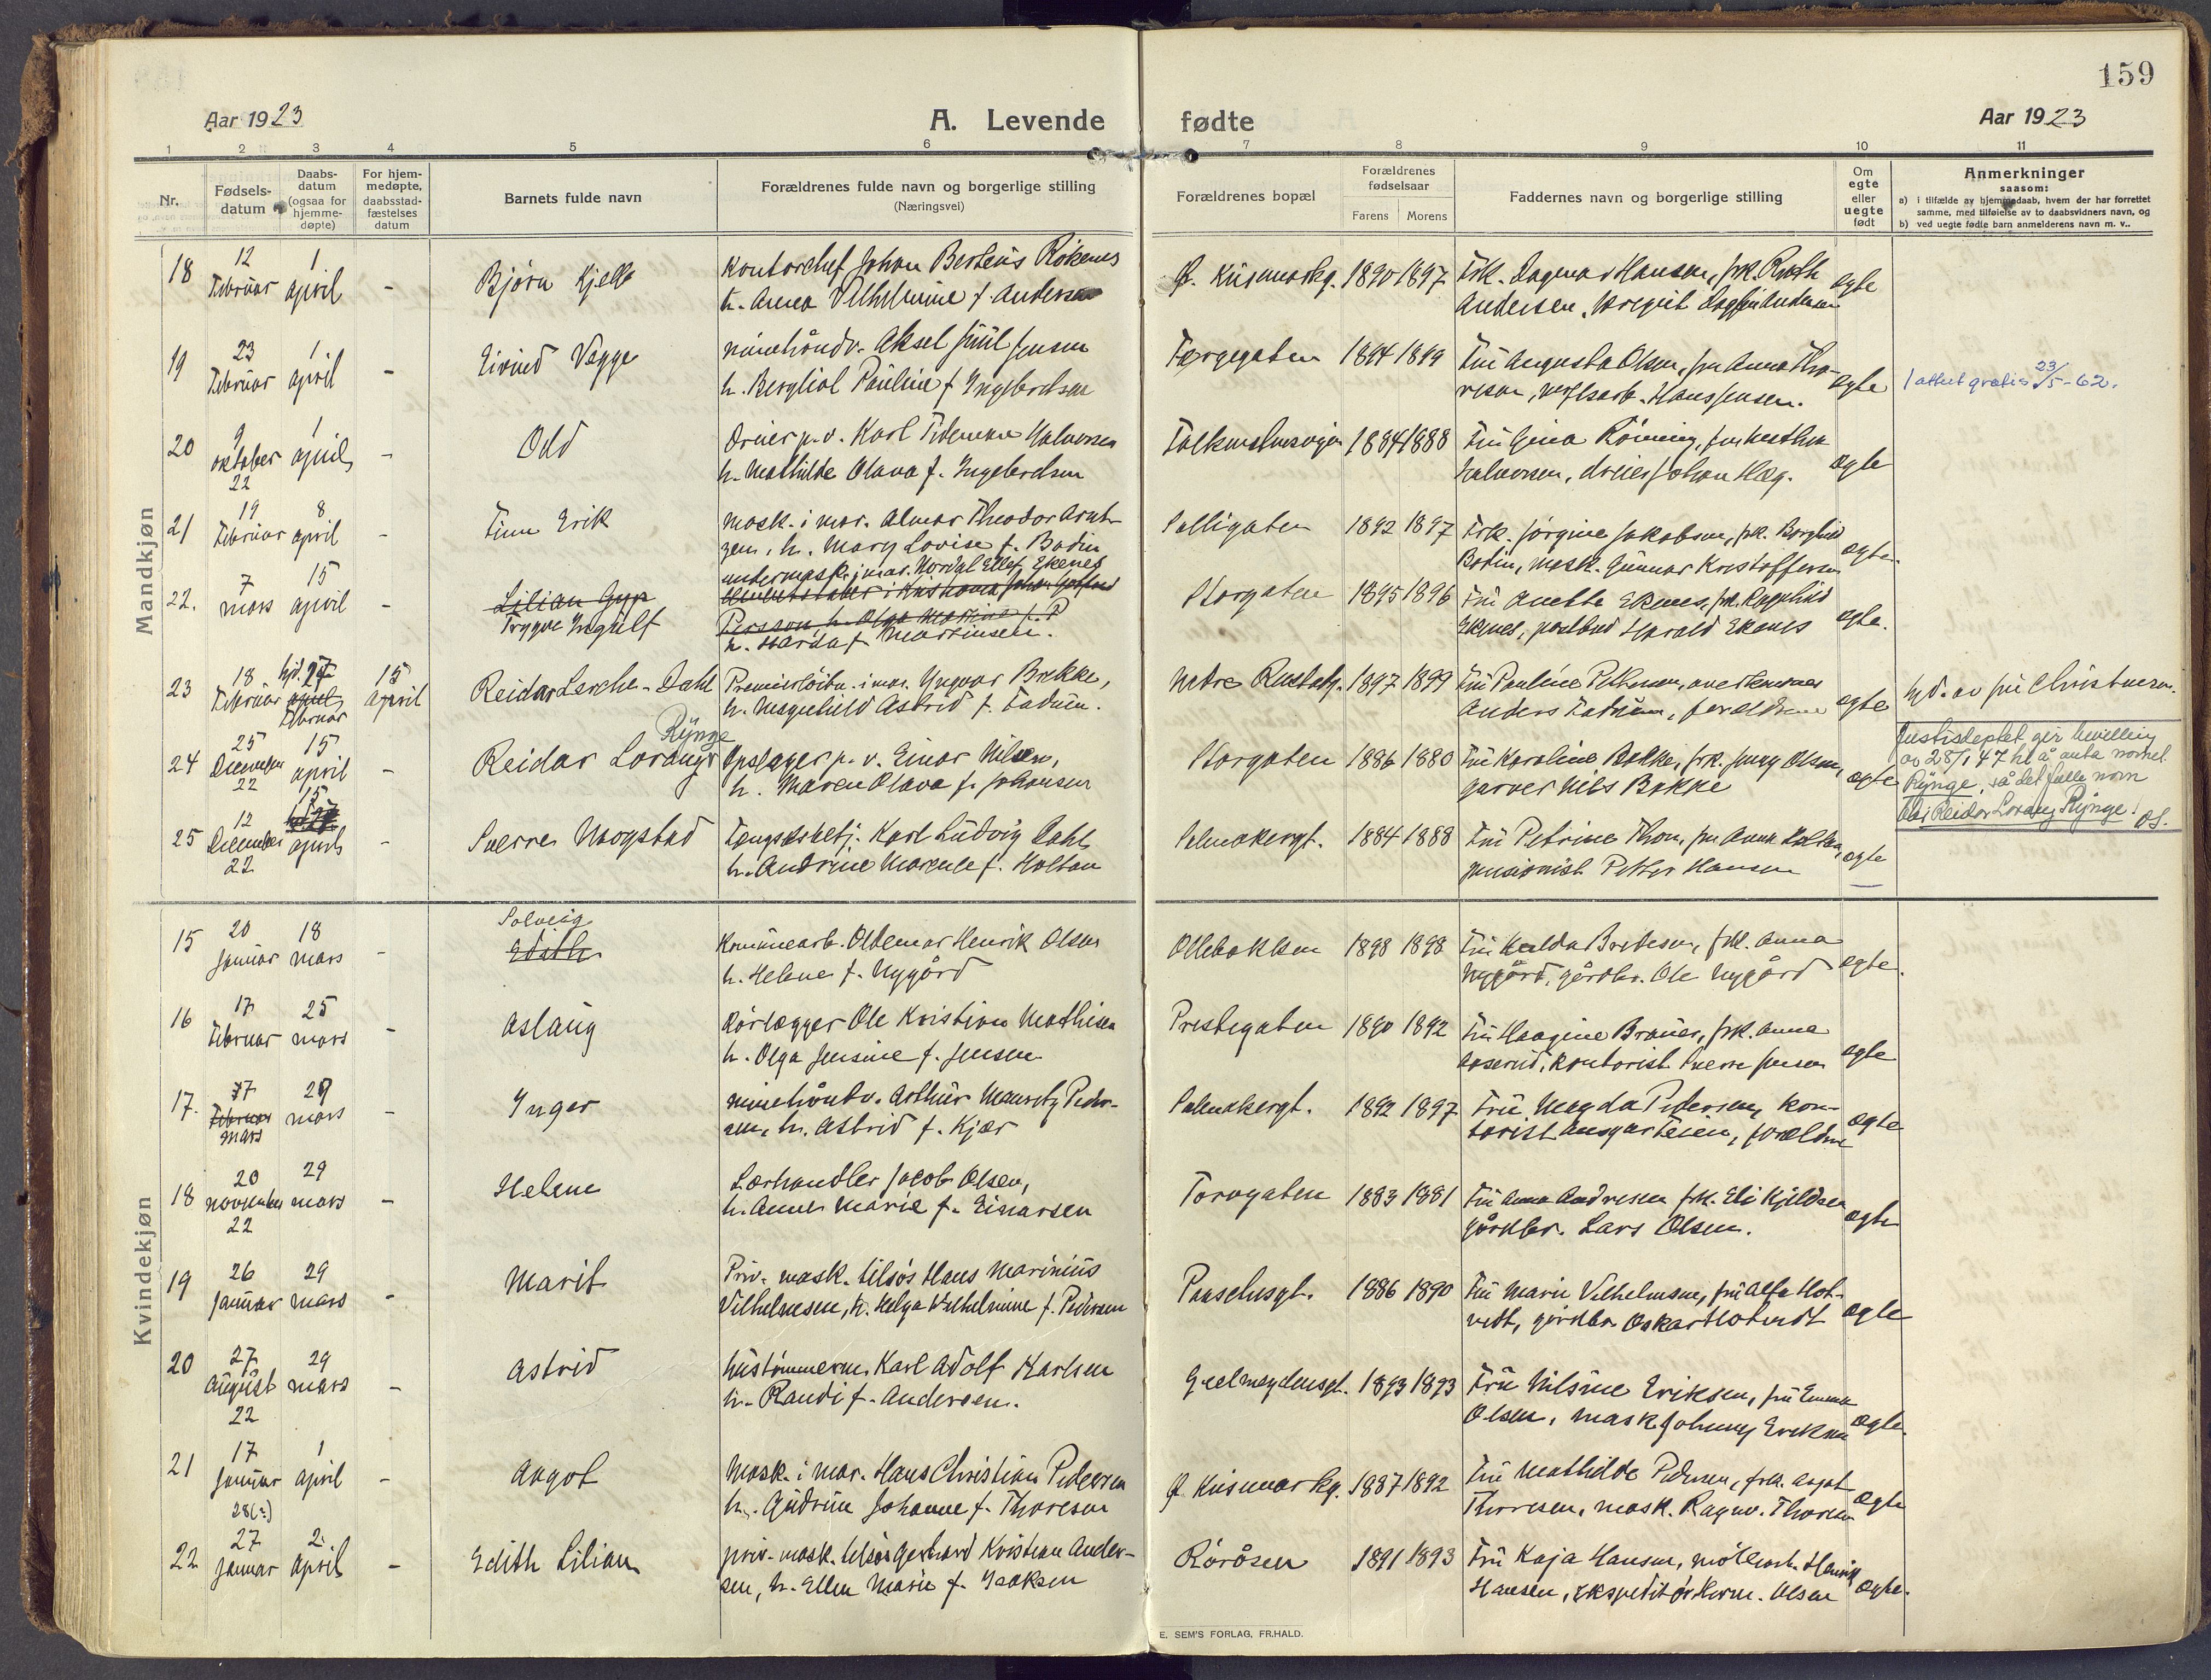 159
Aar 1923
A. Levende fødte
Aar 1923
1 2 3 4 5 6 7 8 9 10 11
Nr.
Fødsels-
datum
Daabs-
datum
(ogsaa for
hjemme-
døpte)
For hjem-
medøpte,
daabsstad-
fæstelses
datum
Barnets fulde navn
Forældrenes fulde navn og borgerlige stilling
(Næringsvei)
Forældrenes bopæl
Forældrenes
fødselsaar
Farens Morens
Faddernes navn og borgerlige stilling
Om
egte
eller
uegte
født
Anmerkninger
saasom:
a) i tilfælde av hjemmedaab, hvem der har forrettet
samme, med tilføielse av to daabsvidners navn, og
b) ved uegte fødte barn anmelderens navn m. v..
Mandkjøn
18 12 Februar 1 april - Bjørn Kjell
Kontorchef Johan Berteus Rökenes
h. Anna Vilhelmine f. Andersen
1890 1897
Frk. Dagmar Hansen, frk. Ruth
Andersen,
egte
19 23 Februar 1 april - Eivind Vegge
minehåndv. Aksel Juul Jensen
h. Bergliot Pauline f Ingebretsen
Færgegaten 1894 1899
Fru Augusta Olsen, fru Anna Tho-
resen, verftsarb. Hans Jensen.
egte
1 attest gratis 23/5-62.
20 9 oktober 22 1 april - Odd
Dreier p.v. Karl Tidemann Halvorsen
h. Mathilde Olava f. Ingebretsen
1884 1888
Fru Gina Rönning,
Halvorsen, dreier Johan Hæg.
egte
21 19 Februar 8 april - Finn Erik
mask. i mar. Almar Theodor Arnt-
zen, h. Mary Lovise f. Bodin
1892 1897
Frk. Jörgine Jakobsen, frk. Borghild
Bodin, mask. Gunnar Kristoffersen
egte.
22. 7 mars 15 april - Lilian Gyp
Trygve Ingulf
undermask. i mar. Nordal Ellef Ekenes
Persson h. Olga Martine f. P
h. Harda f Martinsen.
Storgaten 1895 1896
Fru Anette Ekenes, frk. Ragnhild
Ekenes, postbud Harald Ekenes
egte.
23 18 Februar hjd. 27 april Februar 15 April Reidar Lerche-Dahl
Premierlöitn. i mar. Yngvar Brekke,
h. Magnhild Astrid f. Fadum.
Nedre 1897 1899
Fru Pauline Pettersen,
Anders Fadum, forældrene
egte
hjd. av fru Christensen.
24 25 December 22 15 april - Reidar Lorang Rynge
Opslager p. v. Einar Nilsen,
h. Maren Olava f. Johansen
Storgaten 1886 1880
Fru Karoline Bakke, frk. Jenny Olsen,
garver Nils Bakke
egte
Justisdeptet gir bevilling
av 28/1 47 til å anta navnet
Rynge, så det fulle navn
blir Reidar Lorang Rynge! OS.
25 12 December 22 15 april - Sverre Mogstad
Fængselsbetj. Karl Ludvig Dahl
h. Andrine Marente f. Holtan
1884 1888
Fru Petrine Thon, fru Anna Holtan,
pensionist Petter Hansen
egte
Kvindekjøn
15 20 Januar 18 mars - Solveig
Edith
Kommunearb. Oldemar Henrik Olsen
h. Helene f. Nygård
Ollebakken 1898 1898
Fru Hulda Bretesen, frk. Anna
Nygård, gårdbr. Ole Nygård
egte.
16 17 Februar 25 mars - Aslaug
Rörlægger Ole Kristian Mathisen
h. Olga Jensine f. Jensen
Prestegaten 1890 1892
Fru Haagine Brauer, frk. Anna
Aaserud, kontorist Sverre Jensen
egte
17. 17 Februar mars 29 mars - Inger
minehåndv. Arthur Mauritz Peder-
sen, h. Astrid f. Kjær
1892 1897
Fru Magda Pedersen, kon-
torist Ansgar Teien, forældrene
egte
18 20 november 22 29 mars - Helene
Lærhandler Jacob Olsen,
h. Anne Marie f. Einarsen
Torvgaten 1883 1881
Fru Anna Andresen frk. Eli Kjeldsen
gårdbr. Lars Olsen.
egte
19 26 Januar 29 mars - Marit
Priv. mask. tilsjøs Hans Marinius
Vilhelmsen, h. Helga Wilhelmine f. Pedersen
Paaschesgt. 1886 1890
Fru Marie Vilhelmsen, fru Alfa Hot-
vedt, gårdbr. Oskar Hotvedt
egte
20 27 August 22 29 mars - Astrid
Hustömmerm. Karl Adolf Karlsen
h. Randi f. Andersen.
Gjelmeydensgt. 1893 1893
Fru Nilsine Eriksen, fru Emma
Olsen, mask. Johnny Eriksen
egte.
21 17 Januar 28(?) 1 april - Aagot
Mask. i mar. Hans Christian Pedersen
h. Gudrun Johanne f. Thoresen
1887 1892
Fru Mathilde Pedersen, frk. Aagot
Thoresen, mask. Ragnv. Thoresen
egte
22 27 Januar 2. april - Edith Lilian
priv. mask. tilsjøs Gerhard Kristian Ander-
sen, h. Ellen Marie f. Isaksen
Röråsen 1891 1893
Fru Kaja Hansen, möllearb. Henrik
Hansen, ekspeditör Herm. Olsen
egte.
E. SEM'S FORLAG, FR.HALD.